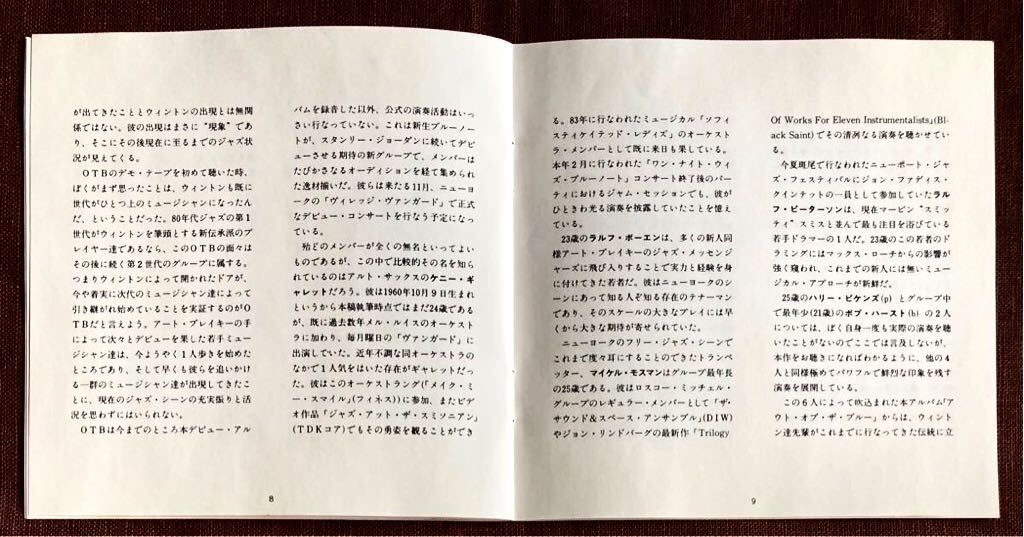 が出てきたこととウィントンの出現とは無関
係ではない。彼の出現はまさに“現象”であ
り、そこにその後現在に至るまでのジャズ状
況が見えてくる。
OTBのデモ・テープを初めて聴いた時、
ぼくがまず思ったことは、ウィントンも既に
世代がひとつ上のミュージシャンになったん
だ、ということだった。80年代ジャズの第1
世代がウィントンを筆頭とする新伝承派のプ
レイヤー達であるなら、このOTBの面々は
その後に続く第2世代のグループに属する。
つまりウィントンによって開かれたドアが、
今や着実に次代のミュージシャン達によって
引き継がれ始めていることを実証するのがO
TBだと言えよう。アート・ブレイキーの手
によって次々とデビューを果した若手ミュー
ジシャン達は、今ようやく1人歩きを始めた
ところであり、そして早くも彼らを追いかけ
る一群のミュージシャン達が出現してきたこ
とに、現在のジャズ・シーンの充実振りと活
況を思わずにはいられない。
OTBは今までのところ本デビュー・アル
バムを録音した以外、公式の演奏活動はいっ
さい行なっていない。これは新生ブルーノー
トが、スタンリー・ジョーダンに続いてデビ
ューさせる期待の新グループで、メンバーは
たびかさなるオーディションを経て集められ
た逸材揃いだ。彼らは来たる11月、ニューヨ
ークの「ヴィレッジ・ヴァンガード」で正式
なデビュー・コンサートを行なう予定になっ
ている。
殆どのメンバーが全くの無名といってよい
ものであるが、この中で比較的その名を知ら
れているのはアルト・サックスのケニー・ギ
ャレットだろう。彼は1960年10月9日生まれ
というから本稿執筆時点ではまだ24歳である
が、既に過去数年メル・ルイスのオーケスト
ラに加わり、毎月曜日の「ヴァンガード」に
出演していた。近年不調な同オーケストラの
なかで1人気をはいた存在がギャレットだっ
た。彼はこのオーケストラング(「メイク・ミ
ー・スマイル」(フィネス))に参加、またビデ
オ作品「ジャズ・アット・ザ・スミソニアン」
(TDKコア)でもその勇姿を観ることができ
8
る。83年に行なわれたミュージカル「ソフィ
スティケイテッド・レディズ」のオーケスト
ラ・メンバーとして既に来日も果している。
本年2月に行なわれた「ワン・ナイト・ウィ
ズ・ブルーノート」コンサート終了後のパー
ティにおけるジャム・セッションでも、彼が
ひときわ光る演奏を披露していたことを憶え
ている。
23歳のラルフ・ボーエンは、多くの新人同
様アート・ブレイキーのジャズ・メッセンジ
ャーズに飛び入りすることで実力と経験を身
に付けてきた若者だ。彼はニューヨークのシ
ーンにあって知る人ぞ知る存在のテナーマン
であり、そのスケールの大きなプレイには早
くから大きな期待が寄せられていた。
ニューヨークのフリー・ジャズ・シーンで
これまで度々耳にすることのできたトランペ
ッター、マイケル・モスマンはグループ最年長
の25歳である。彼はロスコー・ミッチェル・
グループのレギュラー・メンバーとして「ザ・
サウンド&スペース・アンサンブル」(DIW)
やジョン・リンドバーグの最新作「Trilogy
Of Works For Eleven Instrumentalists」(Bl-
ack Saint)でその清冽なる演奏を聴かせてい
る。
今夏斑尾で行なわれたニューポート・ジャ
ズ・フェスティバルにジョン・ファディス・
クインテットの一員として参加していたラル
フ・ピーターソンは、現在マービン“スミッ
ティ”スミスと並んで最も注目を浴びている
若手ドラマーの1人だ。23歳のこの若者のド
ラミングにはマックス・ローチからの影響が
強く窺われ、これまでの新人には無いミュー
ジカル・アプローチが新鮮だ。
25歳のハリー・ピケンズ(p)とグループ中
で最年少(21歳)のボブ・ハースト(b)の2人
については、ぼく自身一度も実際の演奏を聴
いたことがないのでここでは言及しないが、
本作をお聴きになればわかるように、他の4
人と同様極めてパワフルで鮮烈な印象を残す
演奏を展開している。
この6人によって吹込まれた本アルバム「ア
ウト・オブ・ザ・ブルー」からは、ウィント
ン達先輩がこれまでに行なってきた伝統に立
9